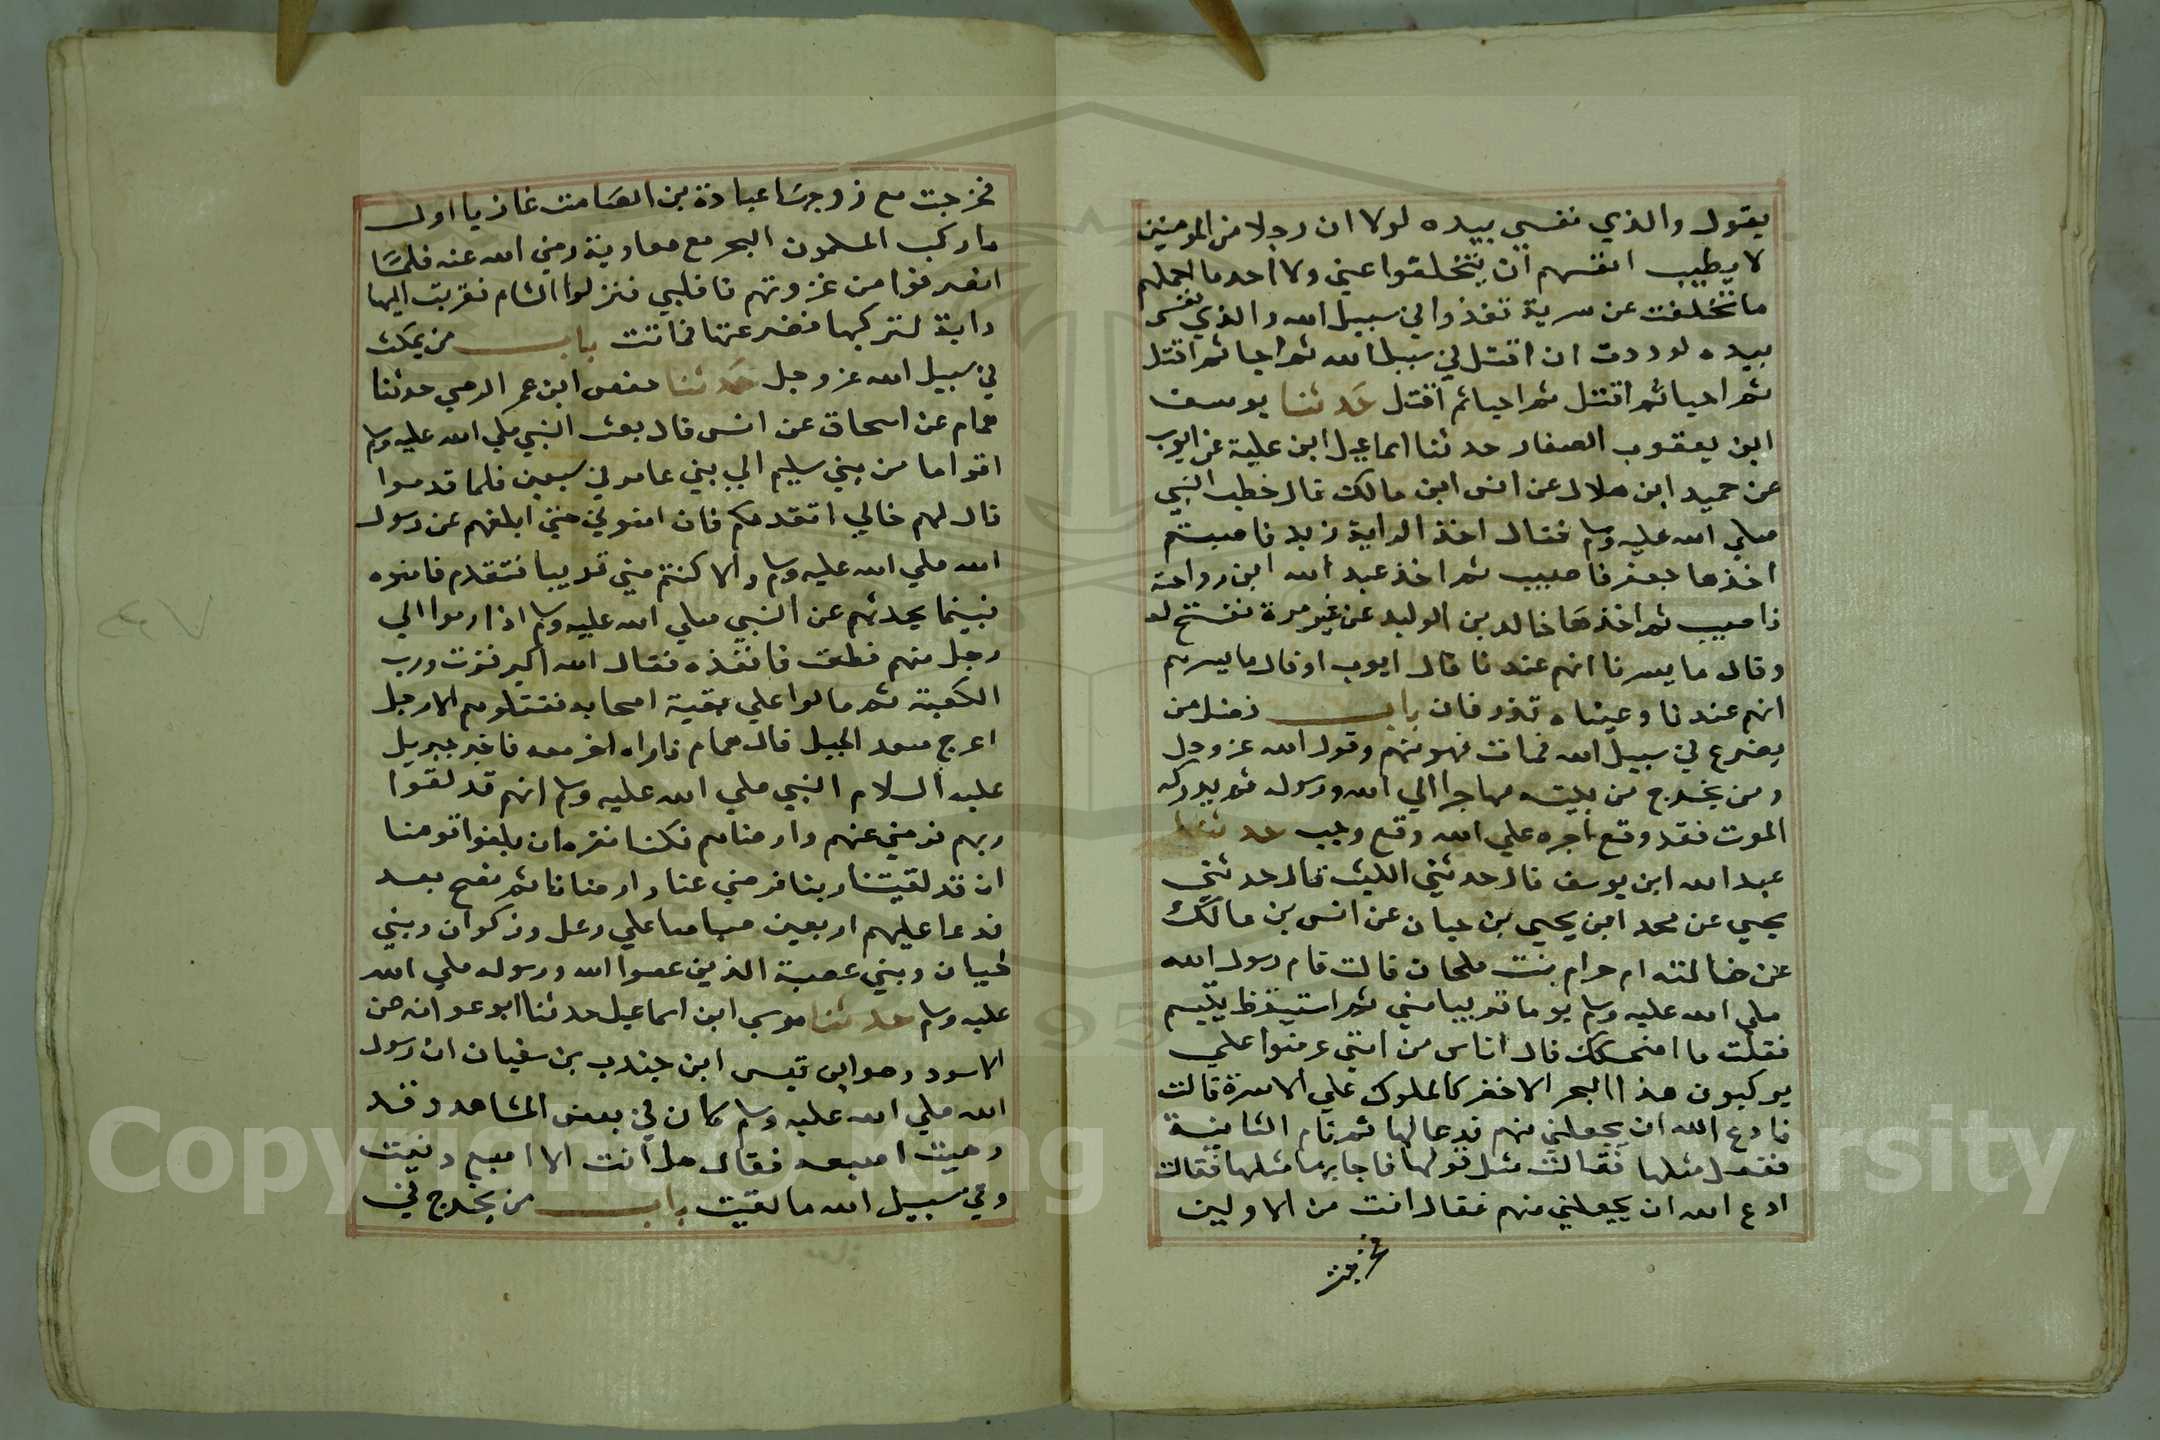 يقول والذي نفسي بيده لولا ان رجلا من المومنين
لا يطيب انفسهم ان يتخلفوا عني ولا احد ما احملهم
ما تخلفت عن سرية تغذوا في سبيل الله والذي نفسي
بيده لوددت ان اقتل في سبيل الله ثم احيا ثم اقتل
ثم احيا ثم اقتل ثم احيا ثم اقتل حدثنا يوسف
ابن يعقوب الصفار حدثنا اسماعيل ابن علية عن ايوب
عن حميد ابن هلال عن انس ابن مالك قال خطب النبي
صلي الله عليه وسلم فقال اخذ الراية زيد فاصيبتم
اخذها جعفر فاصيب ثم اخذ عبد الله ابن رواحة
فاصيب ثم اخذها خالد بن الوليد عن غير مرة ففتح له
وقال ما يسرنا انهم عندنا قال ايوب او قال ما يسرهم
انهم عندنا وعيناه تذرفان باب فضل من
يصرع في سبيل الله فمات فهو منهم وقول الله عز وجل
ومن يخرج من بيته مهاجرا الي الله ورسوله ثم يدركه
الموت فقد وقع اجره علي الله وقع وجب حدثنا
عبد الله ابن يوسف قال حدثني الليث قال حدثني
يحيي عن محمد ابن يحيي بن حبان عن انس بن مالك
عن خالته ام حرام بنت ملحان قالت قام رسول الله
صلي الله عليه وسلم يوما قريبا مني ثم استيقظ يتبسم
فقلت ما اضحكك قال اناس من امتي عرضوا علي
يركبون هذا البحر الاخضر كالملوك علي الاسرة قالت
فادع الله ان يجعلني منهم فدعا لها ثم قام الثانية
ففعل مثلها فقالت مثل قولها فاجابها مثلها فقالت
ادع الله ان يجعلني منهم فقال انت من الاولين
فخرجت
فخرجت مع زوجها عبادة بن الصامت غازيا اول
ما ركب المسلمون البحر مع معاوية رضي الله عنه فلما
انصرفوا من غزوتهم قافلين فنزلوا الشام فقربت اليها
دابة لتركبها فصرعتها فماتت باب من ينكث
في سبيل الله عز وجل حدثنا حفص ابن عمر الرمي حدثنا
همام عن اسحاق عن انس قال بعث النبي صلي الله عليه وسلم
اقواما من بني سليم الي بني عامر في سبعين فلما قدموا
قال لهم خالي اتقدمكم فان امنوني حتي ابلغهم عن رسول
الله صلي الله عليه وسلم والا كنتم مني قريبا فتقدم فامنوه
فبينما يحدثهم عن النبي صلي الله عليه وسلم اذا ارموا الي
رجل منهم فطعن فانفذه فقال الله اكبر فزت ورب
الكعبة ثم مالوا علي بقية اصحابه فقتلوهم الا رجل
اعرج صعد الجبل قال همام فاراه اخر معه فاخبر جبريل
عليه السلام النبي صلي الله عليه وسلم انهم قد لقوا
ربهم فرضي عنهم وارضاهم فكنا نقره ان بلغوا قومنا
ان قد لقيتنا ربنا فرضي عنا وارضانا ثم نسخ بعد
فدعا عليهم اربعين صباحا علي رعل وذكوان وبني
لحيان وبني عصية الذين عصوا الله ورسوله صلي الله
عليه وسلم حدثنا موسي ابن اسماعيل حدثنا ابو عوانه عن
الاسود وهو ابن قيس ابن جندب بن سفيان ان رسول
الله صلي الله عليه وسلم كان في بعض المشاهد وقد
دميت اصبعه فقال هل انت الا اصبع دميت
وفي سبيل الله ما لقيت باب من يخرج في
Copyright © King Saud University